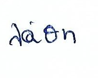 λάθη